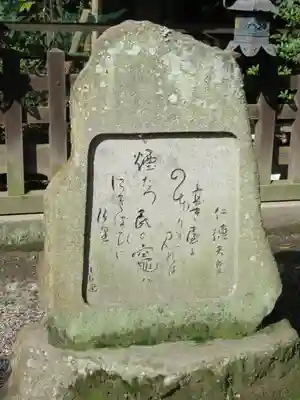 仁徳天皇
高き屋に
のぼりて見れば
煙たつ民の竈は
にぎはひに
けり